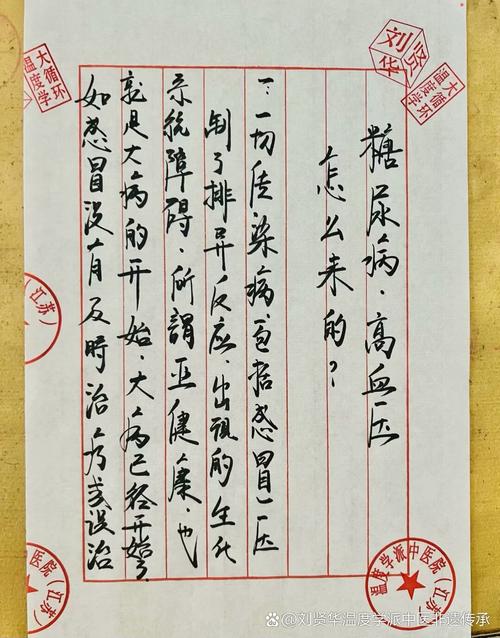 糖尿病、高血压
怎么来的？
一：一切传染病、包括感冒、压
制了排异反应、出现的生化
系统障碍、所謂亚健康、也
就是大病的开始、大病已经开始
如感冒没有及時治疗或误治
刘贤华
大循环
温度学
大循环
温度学
（江苏）
中医院（江苏）
温度学派中医院（江苏）
@刘贤华温度学派中医非遗传承